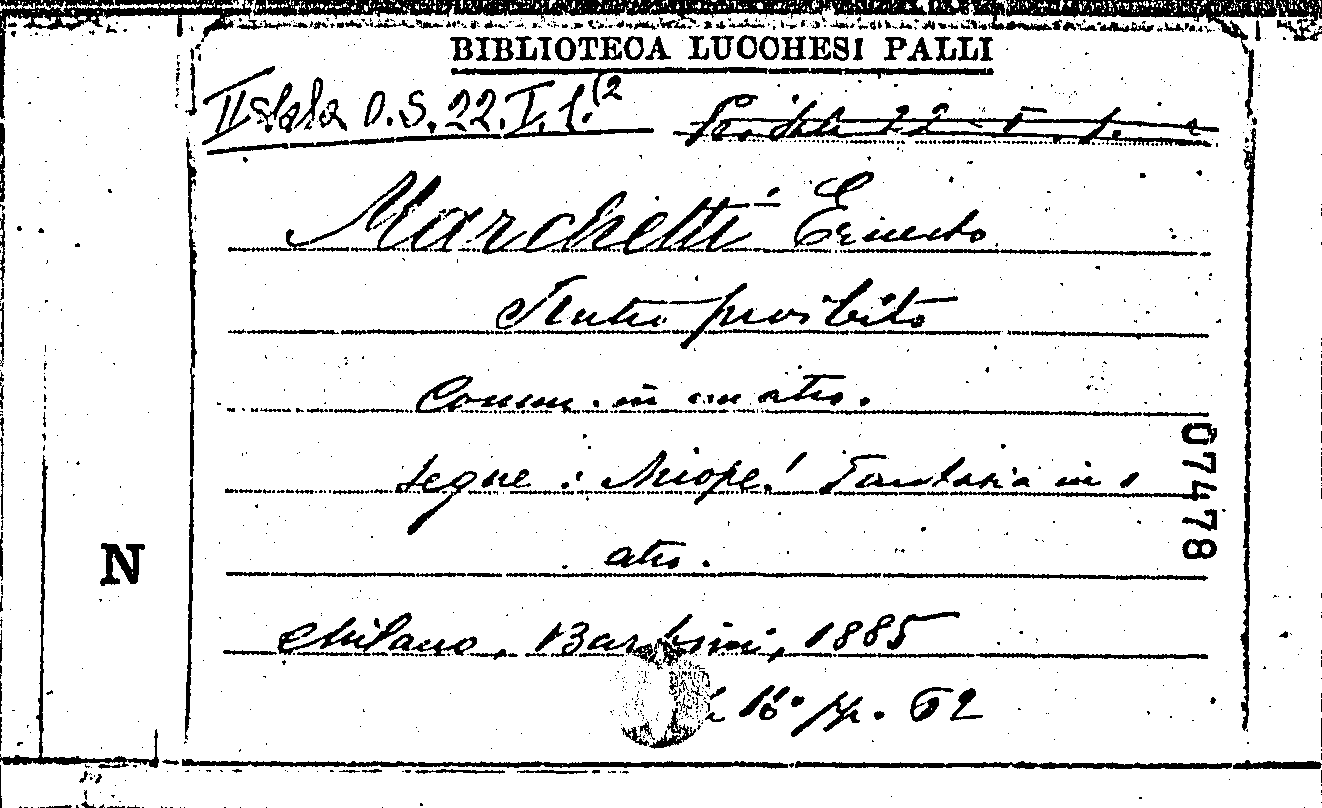 BIBLIOTECA LUCCHESI PALLI
II Sala O.S. 22. I. 1.(2
Marchetti Ernesto
Frutto proibito
Comm. in un atto.
segue: Miope! Fantasia in 1
atto.
Milano, Barbini, 1885
in 16° pp. 62
N
07478